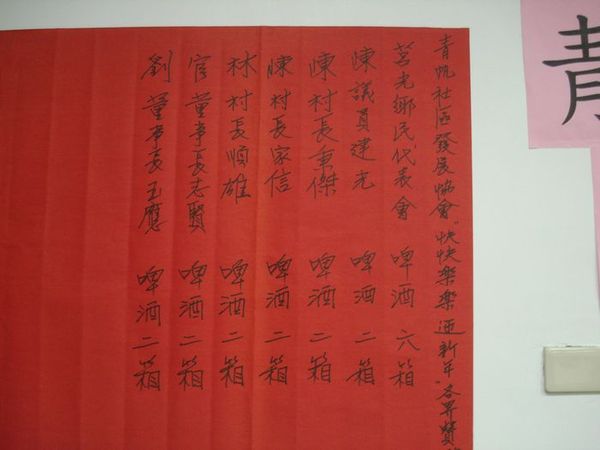 青帆社區發展協會"快快樂樂迎新年"各界贊
莒光鄉民代表會 啤酒 六箱
陳議員建光 啤酒 二箱
陳村長秉傑 啤酒 二箱
陳村長家信 啤酒 二箱
林村長順雄 啤酒 二箱
官董事長志賢 啤酒 二箱
劉董事長玉應 啤酒 二箱